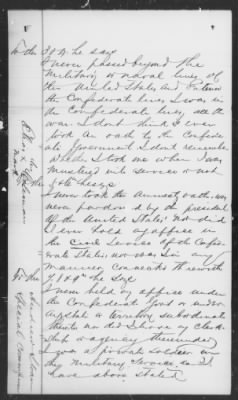 To the 3 & 4 he says
I never passed beyond the
Military or naval lines of
the United States and Entered
the Confederate lines, I was in
the Confederate lines, all the
war I dont think I ever
took an oath to the Confede-
rate Government I dont remember
whether I took one when I was
mustered into service or not
To the 5th he says
I never took the Amnesty oath, was
never pardoned by the president
of the United States Nor did
I ever hold any office in
the Civil Service of the Confed-
erate States nor was I in any
manner connected therewith
To the 8 & 9th he says
I never held any office under
the Confederate Govt or under
any State or territory subordinate
thereto nor did I have any clerk-
ship or agency thereunder
I was a private soldier in
the Military Service as I
have above stated
his
mark
Special Commissioner